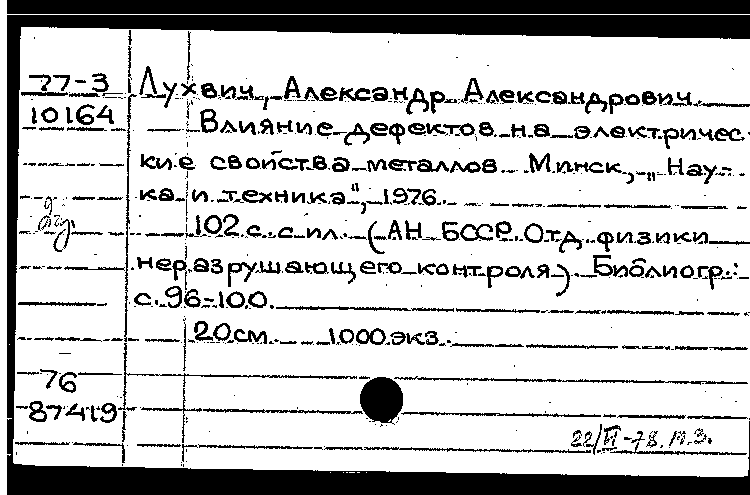 77-3 Лухвич, Александр Александрович.
10164 Влияние дефектов на электричес-
кие свойства металлов. Минск, „Нау-
ка и техника", 1976.
102 с. с ил. (АН БССР. Отд. физики
неразрушающего контроля). Библиогр.:
с. 96-100.
20 см. 1000 экз.
76
87419
22/VI-78.